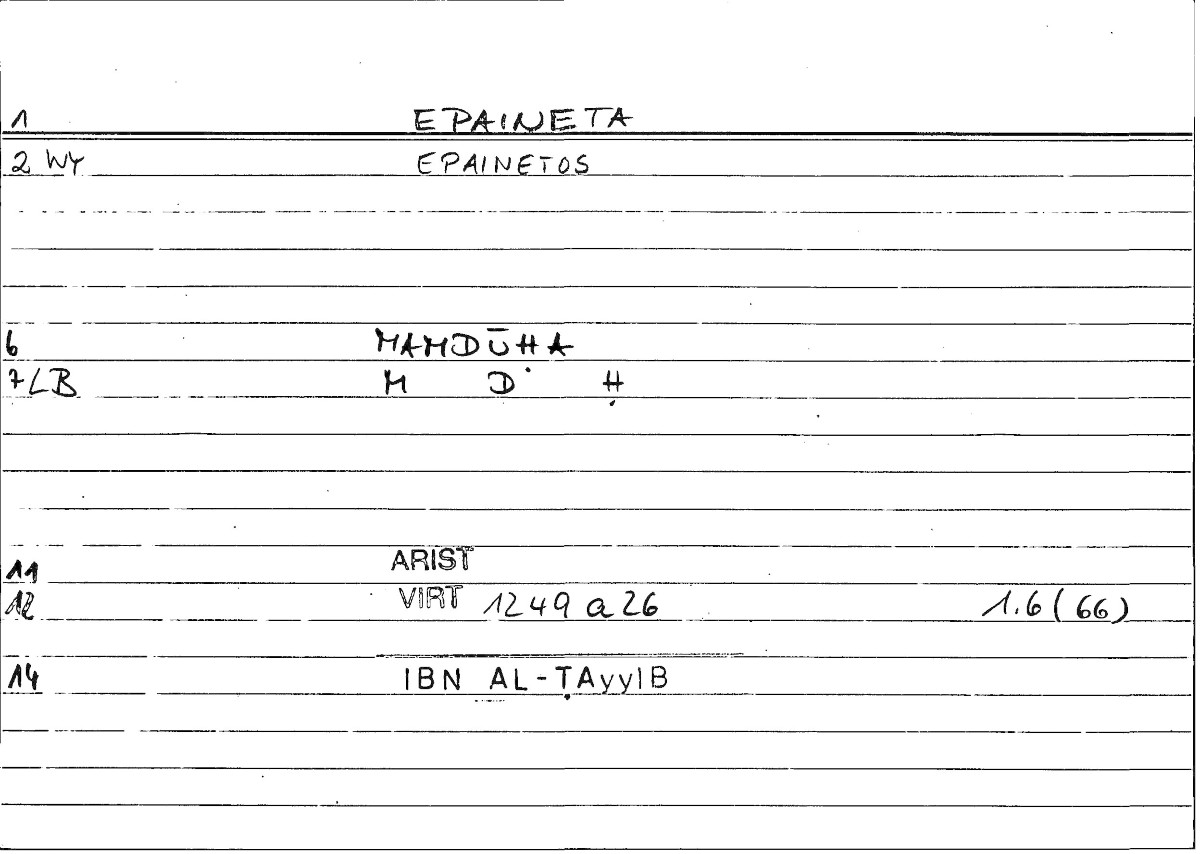 1 EPAINETA
2 WY EPAINETOS
6 MAMDŪḤA
7 LB M D Ḥ
11 ARIST
12 VIRT 1249 a 26 1.6 (66)
14 IBN AL-ṬAyyIB